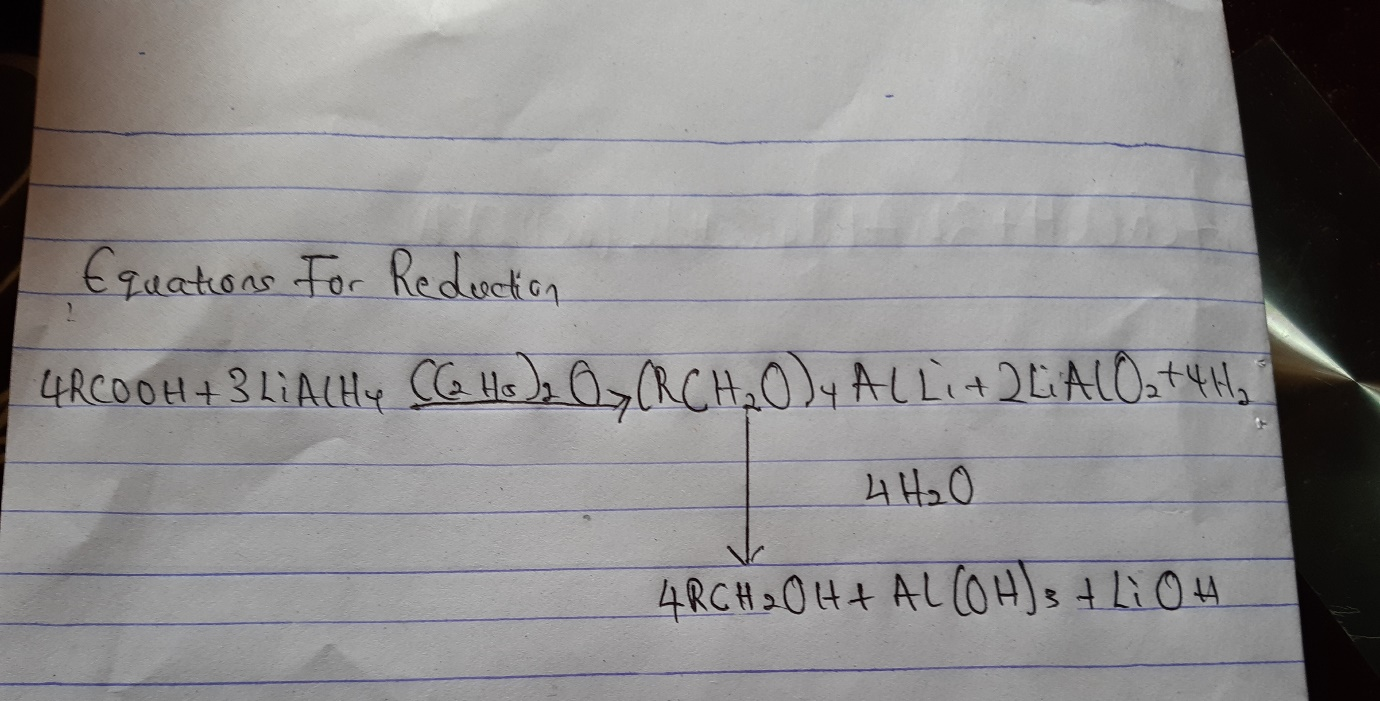 Equations For Reduction
4RCOOH + 3LiAlH4 (C2H5)2O → (RCH2O)4AlLi + 2LiAlO2 + 4H2
4H2O
4RCH2OH + Al(OH)3 + LiOH